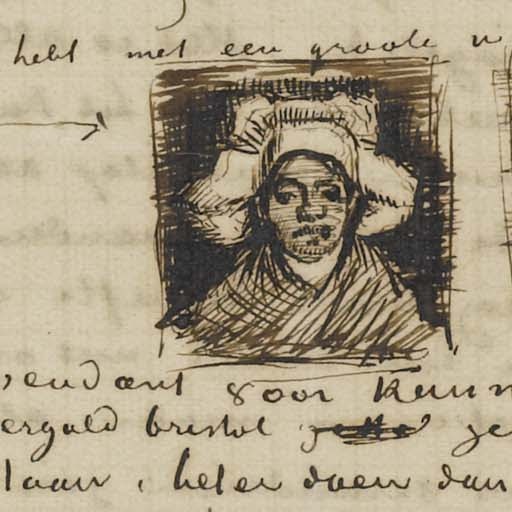 hebt met een groote
pendant voor
verguld bristol
slaan, beter doen dan